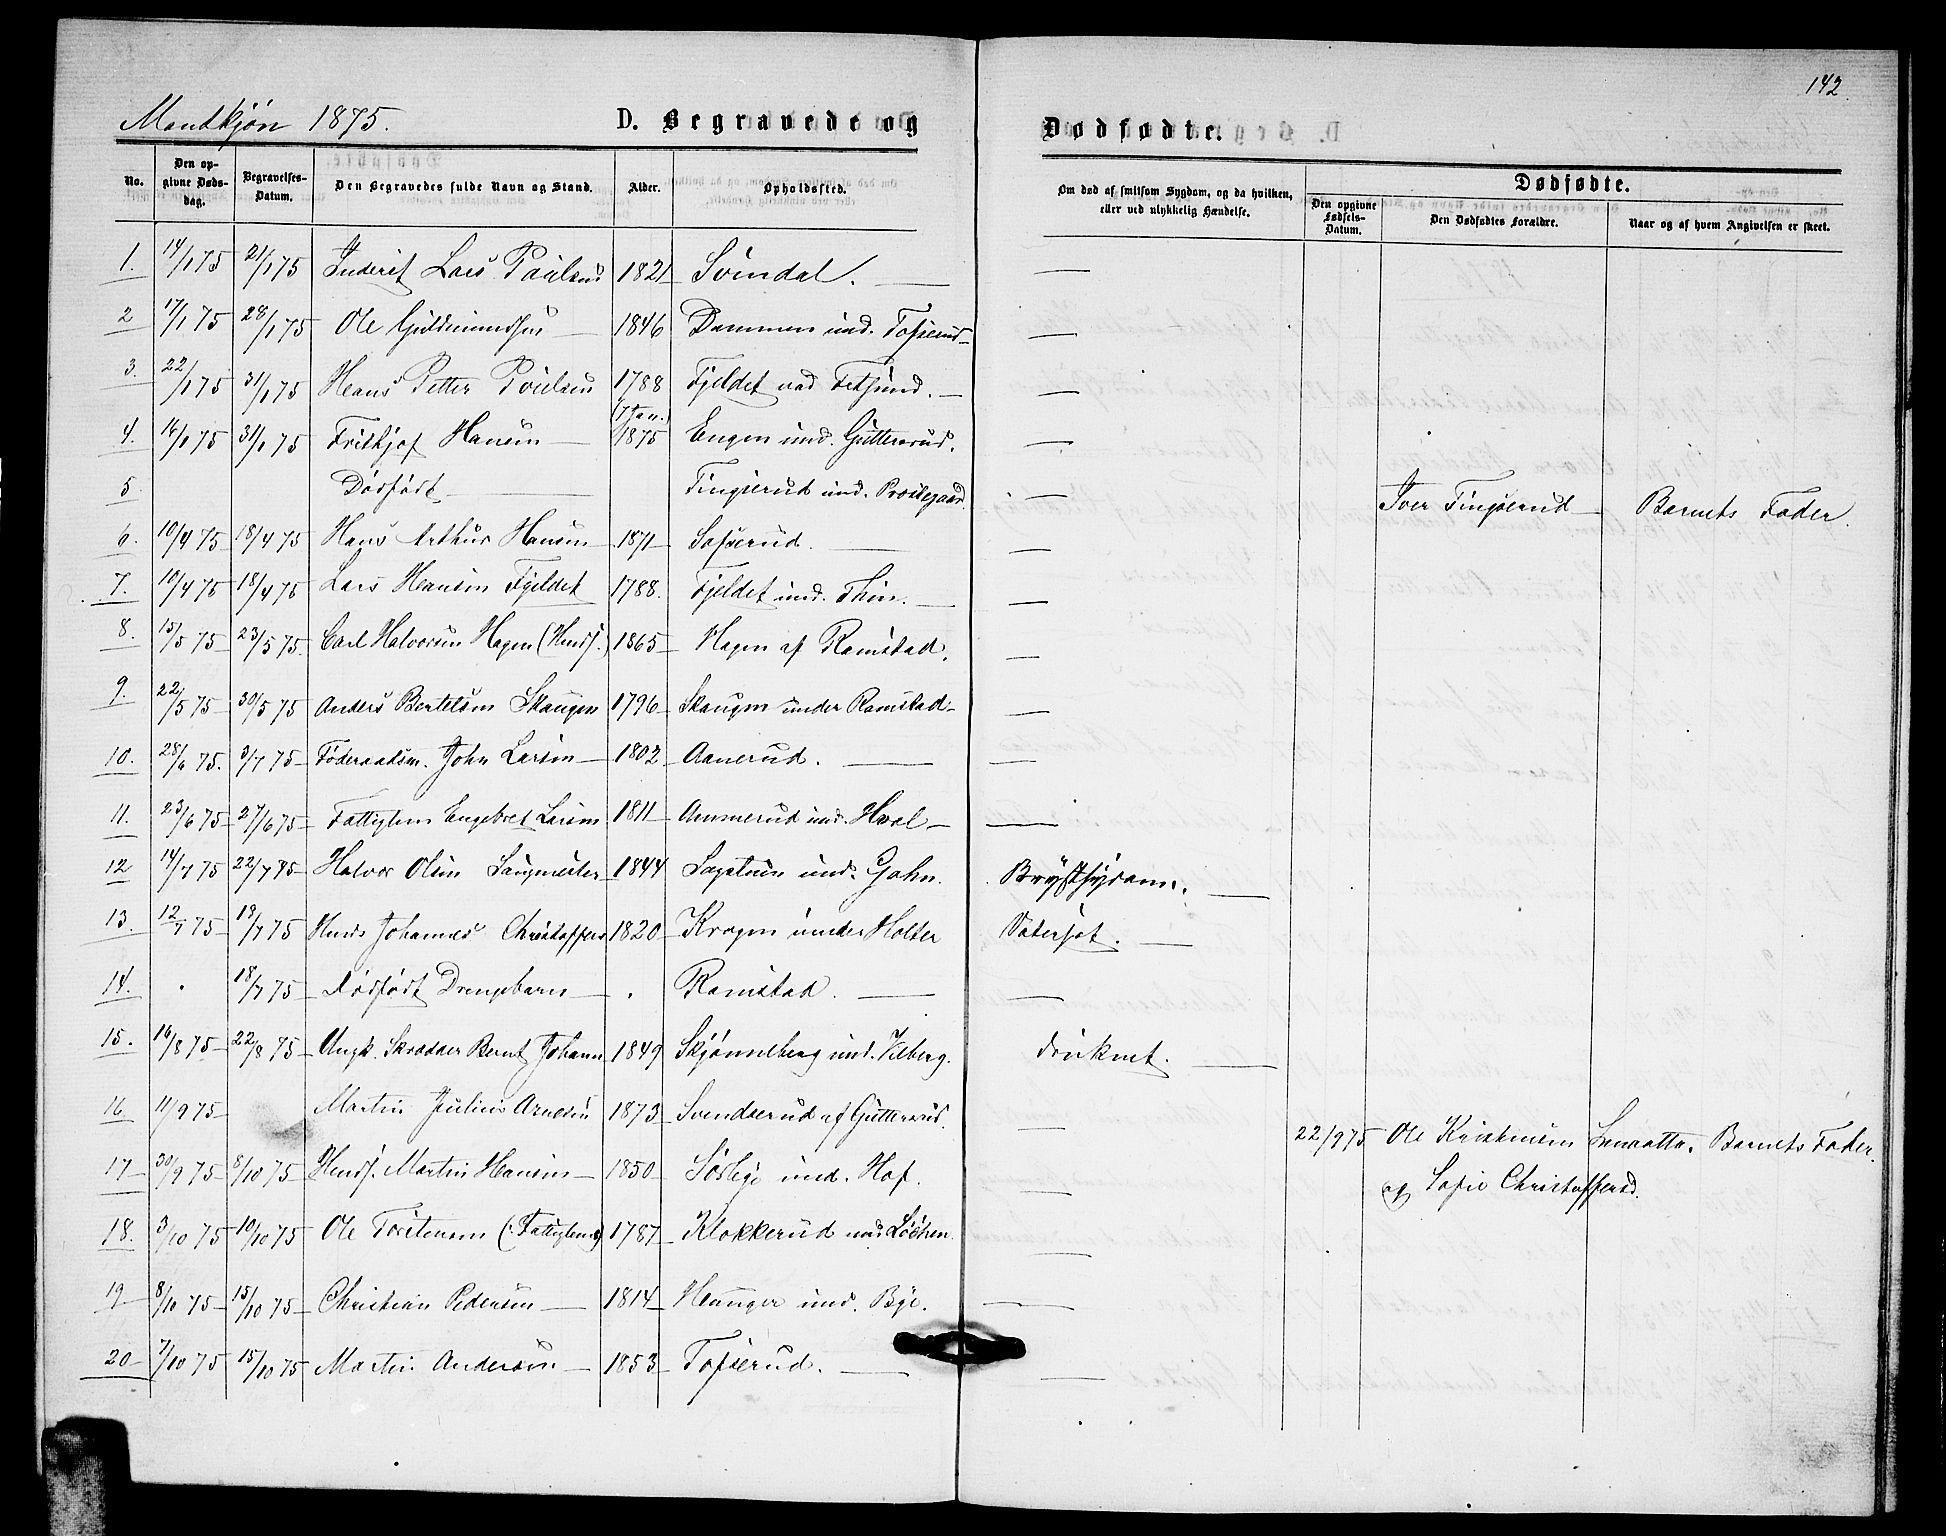 142.
Mandkjøn 1875. D. Begravede og Dødfødte.
No. Den opgivne Dødsdag. Begravelses-Datum. Den Begravedes fulde Navn og Stand. Alder. Opholdssted. Om død af smitsom Sygdom, og da hvilken, eller ved ulykkelig Hændelse. Dødfødte. Den opgivne Fødsels-Datum. Den Dødfødtes Forældre. Naar og af hvem Angivelsen er skeet.
1. 14/1 75 21/1 75 Inderst Lars Paulsen 1821 Svindal. —
2 17/1 75 28/1 75 Ole Guldmundsen — 1846 Dammen und. Tofserud —
3. 22/1 75 31/1 75 Hans Petter Poulsen 1788 Fjeldet ved Fetsund. —
4. 16/1 75 31/1 75 Frithjof Hansen — (7 Jan.) 1875 Engen und. Guttersrud. —
5 Dødfødt — Tingserud und. Prestegaard. — Iver Tingserud — Barnets Fader.
6. 10/4 75 18/4 75 Hans Arthur Hansen — 1871 — Sofserud. —
7. 10/4 75 18/4 75 Lars Hansen Fjeldet 1788. Fjeldet und. Thien. —
8. 15/5 75 23/5 75. Carl Halvorsen Hagen (Huusf.) 1865 — Hagen af Ramstad. —
9. 22/5 75 — 30/5 75 Anders Bertelsen Skaugen 1796 — Skaugen under Ramstad — —
10. 28/6 75. 3/7 75 — Føderaadsm. John Larsen — 1802 — Aanerud. — —
11. 23/6 75 — 27/6 75 — Fattiglem Engebret Larsen 1811 — Ammerud und. Hval — —
12 14/7 75 22/7 75 — Halvor Olsen Saugmester — 1844 Sagstuen und. Gahn. Brystsygdom. —
13. 12/7 75 — 19/7 75 Huusm. Johannes Christoffers 1820 — Kragen under Holter Vatersot. —
14. 18/7 75 — Dødfødt Drengebarn — Ramstad. — —
15. 16/8 75 — 22/8 75 — Ungk. Skrædder Bernt Johann 1849 Skjønneberg und. Vilberg. druknet. —
16 11/9 75 — Martin Julius Arnesen 1873 — Svendserud af Guttersrud. — 22/9 75 Ole Kristensen Barnets Fader.
og Sofie Christoffersd.
17 — 30/9 75 8/10 75 — Huusf. Martin Hansen — 1850 — und. Hof. —
18. 3/10 75 10/10 75 — Ole Torstensen (: Fattiglem :) 1787 — Klokkerud und Løchen. —
19 — 8/10 75 — 15/10 75 — Christian Pedersen — 1814 — Haunger und. Bye. —
20 — 7/10 75 15/10 75 Martin Andersen — 1853 — Tofserud. — —